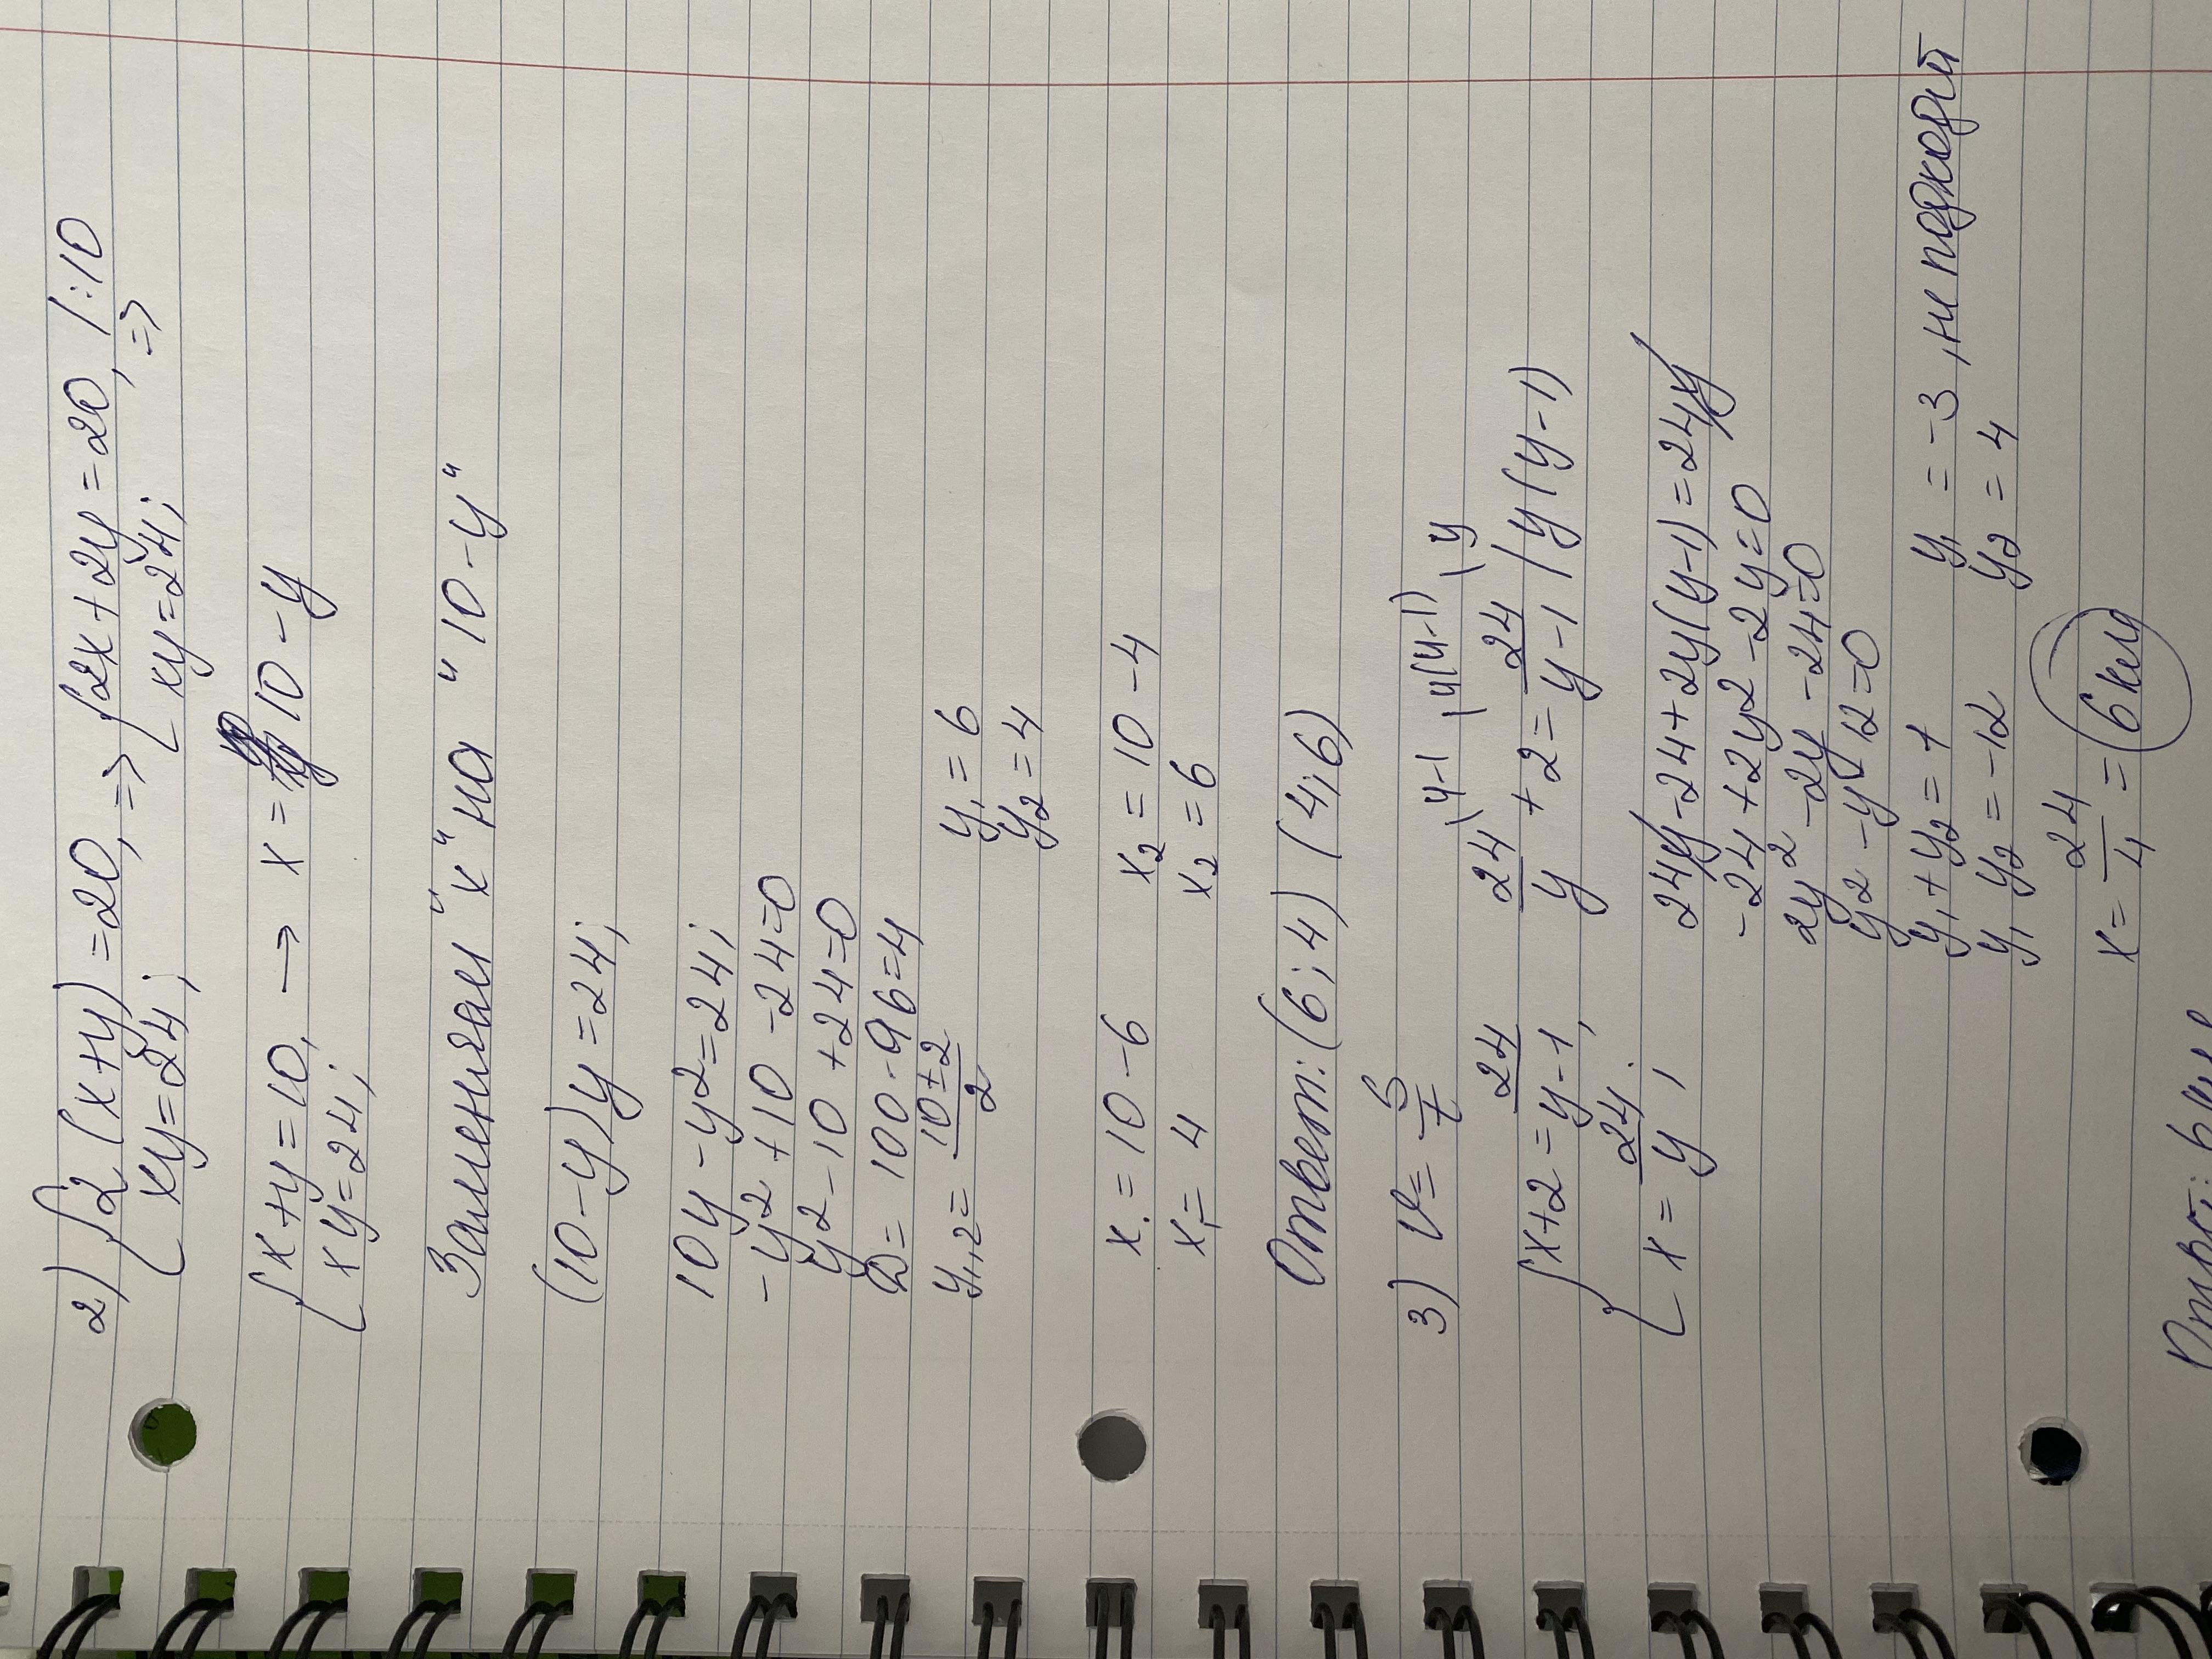 2) { 2(x+y)=20, => { 2x+2y=20, /:10
xy=24; xy=24; =>
{ x+y=10, → x= 10-y
xy=24;
Заменяем "x" на "10-y"
(10-y)y=24;
10y-y2=24;
-y2+10-24=0
y2-10+24=0
D=100-96=4
y1,2= 10±2/2 y1=6
y2=4
x.=10-6 x2=10-4
x1=4 x2=6
Ответ: (6;4) (4;6)
3) V= S/t |y-1 |y(y-1) |y
{ x+2= 24/y-1, 24/y +2= 24/y-1 /y(y-1)
x= 24/y; 24y-24+2y(y-1)=24y
-24+2y2-2y=0
2y2-2y-24=0
y2-y-12=0
y1+y2=1 y1=-3, не подходит
y1 y2=-12 y2=4
x= 24/4 = 6